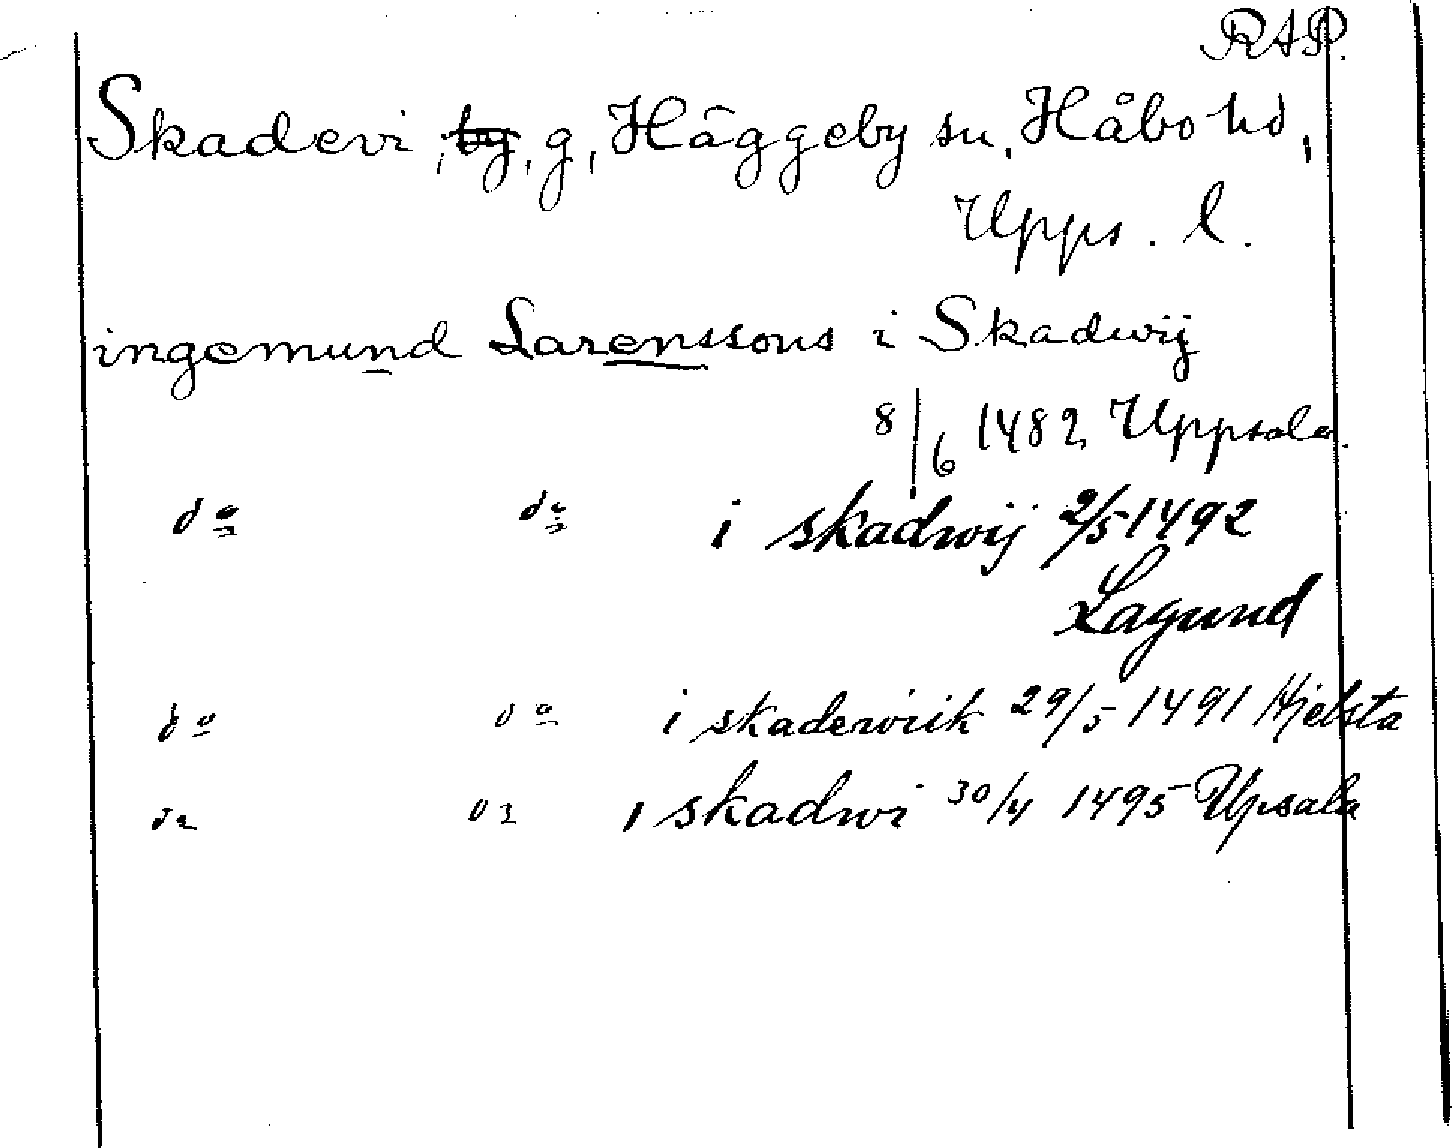 RAP.
Skadevi, by, g, Häggeby sn, Håbo hd,
Upps. l.
ingemund Larenssons i Skadwij
8/6 1482 Uppsala.
do do i skadwij 2/5 1492
Lagund
do do i skaderwiik 29/5 1491 Hjelsta
do do i skadwi 30/4 1495 Upsala